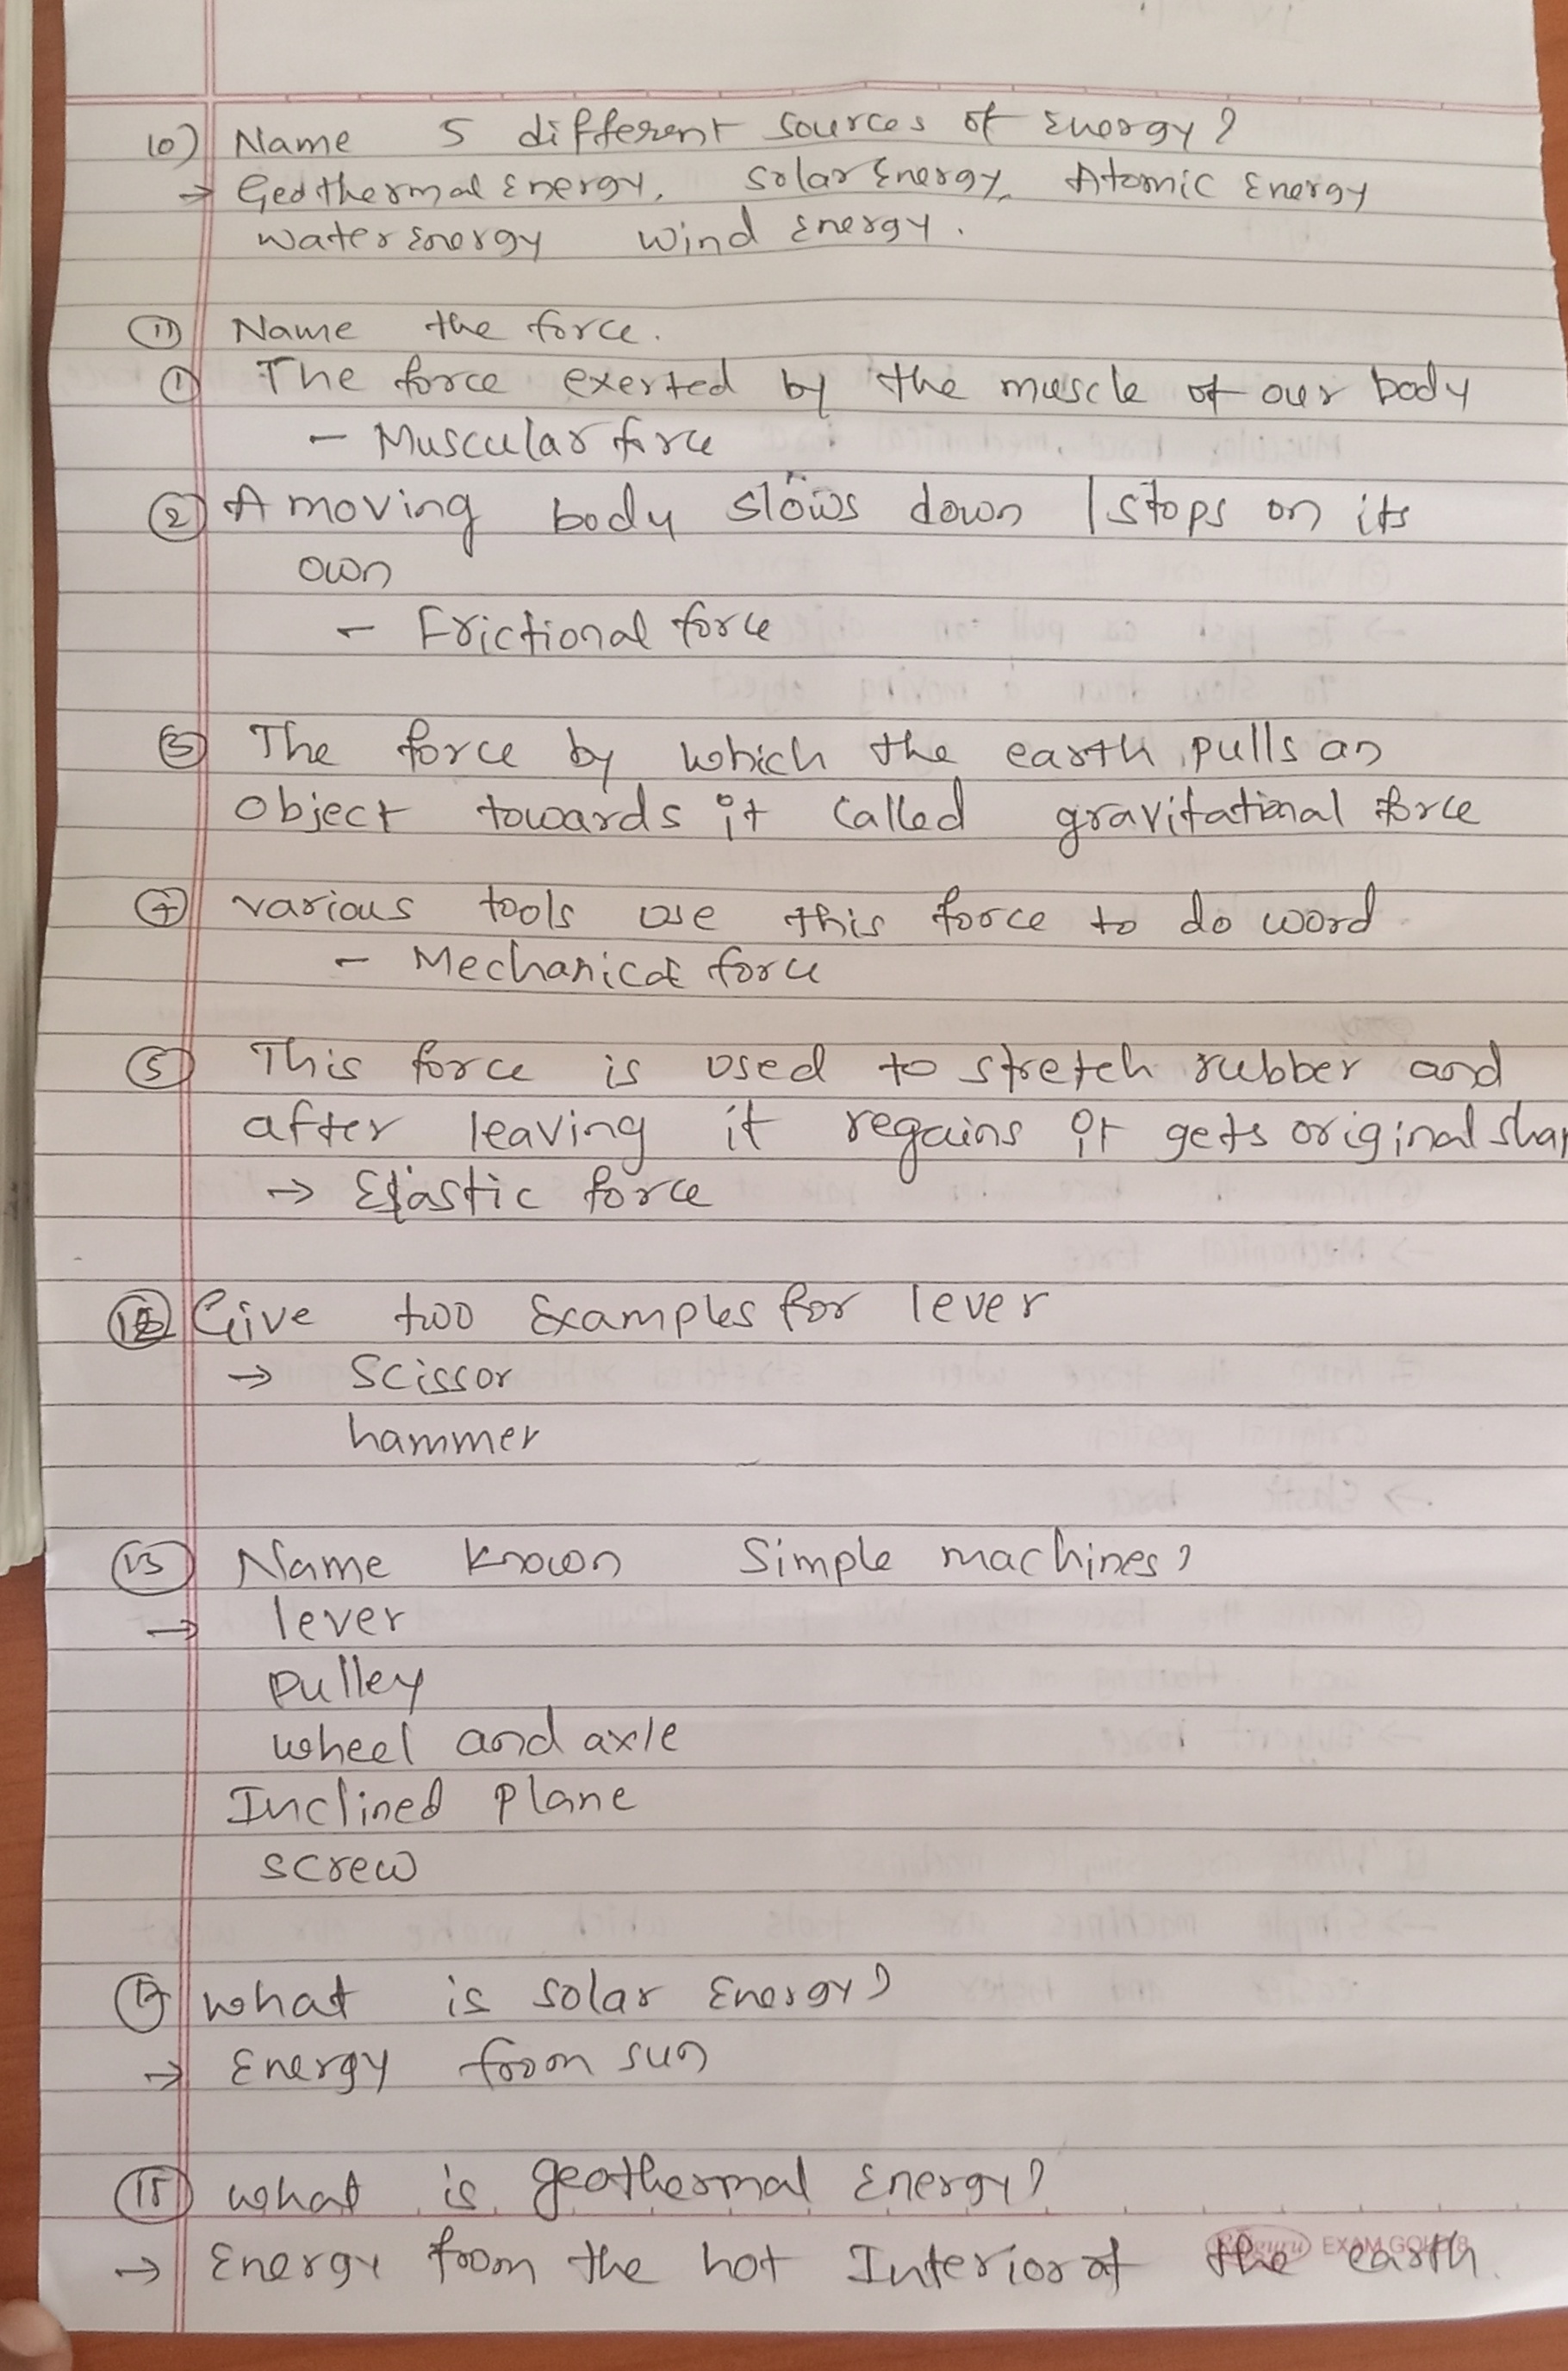 10) Name 5 different sources of Energy?
→ Geothermal Energy, Solar Energy, Atomic Energy
Water Energy Wind Energy.
11) Name the force.
1) The force exerted by the muscle of our body
- Muscular force
2) A moving body slows down / stops on its
own
- Frictional force
3) The force by which the earth pulls an
Object towards it called gravitational force
4) various tools use this force to do word
- Mechanical force
5) This force is used to stretch rubber and
after leaving it regains it gets original shap
→ Elastic force
12) Give two Examples for lever
→ Scissor
hammer
13) Name known Simple machines?
→ lever
pulley
wheel and axle
Inclined plane
screw
14) what is solar Energy?
→ Energy from sun
15) what is geothermal Energy?
→ Energy from the hot Interior of the earth.